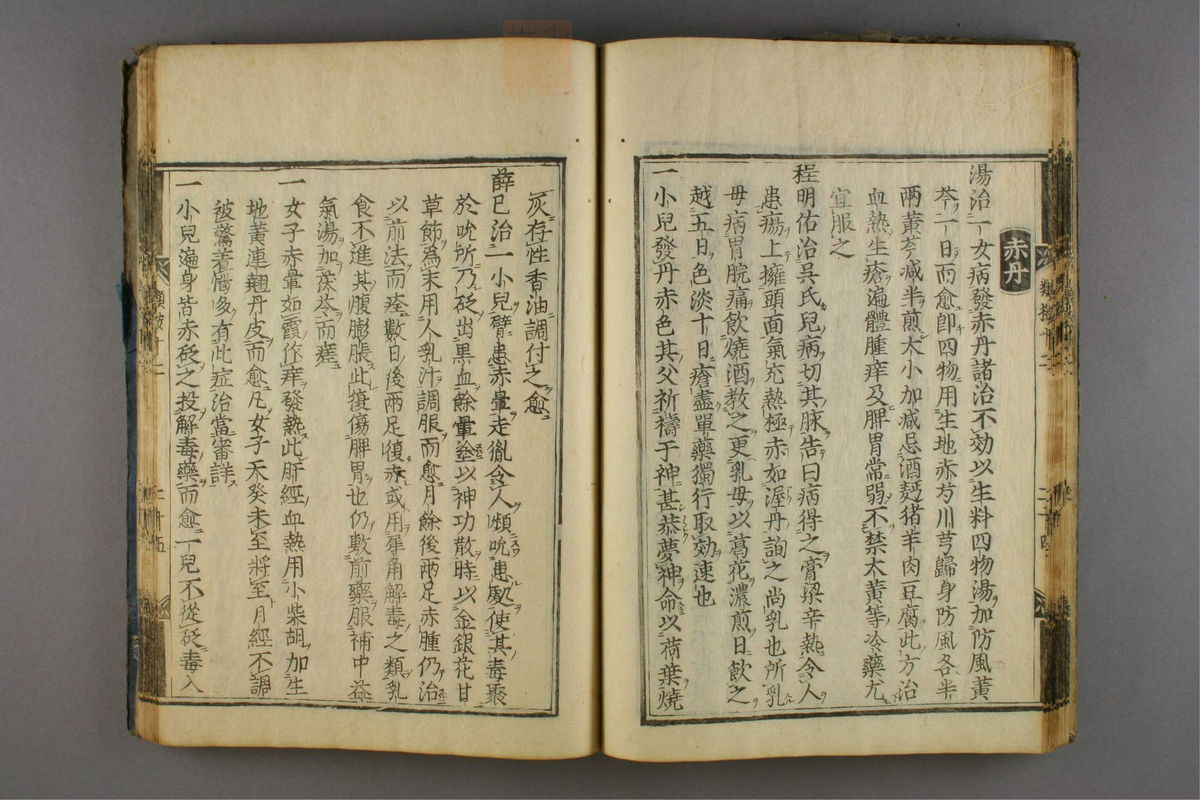 赤丹
湯治一女病發赤丹諸治不効以生料四物湯加防風黄
芩一日而愈卽四物用生地赤芍川芎歸身防風各半
兩黄芩减半煎大小加减忌酒麪猪羊肉豆腐此方治
血熱生瘡遍體腫痒及脾胃常弱不禁大黄等冷藥尤
宜服之
程明佑治吳氏兒病切其脉告曰病得之膏粱辛熱令人
患瘍上擁頭面氣充熱極赤如渥丹詢之尚乳也所乳
母病胃脘痛飲燒酒教之更乳母以葛花濃煎日飲之
越五日色淡十日瘡盡單藥獨行取効速也
一小兒發丹赤色其父祈禱于神甚恭夢神命以荷葉燒
灰存性香油調付之愈
薛已治一小兒臂患赤暈走彻令人頻吮患處使其毒聚
於吮所乃砭出黒血餘暈塗以神功散時以金銀花甘
草節爲末用人乳汁調服而愈月餘後兩足赤腫仍治
以前法而痊數日後兩足復赤或用犀角解毒之類乳
食不進其腹膨脹此復傷脾胃也仍敷前藥服補中益
氣湯加茯苓而瘥
一女子赤暈如霞作痒發熱此肝經血熱用小柴胡加生
地黄連翹丹皮而愈凡女子天癸未至將至月經不調
被驚着惱多有此症治當審詳
一小兒遍身皆赤砭之投解毒藥而愈一兒不從砭毒入
類按十二
二十四
二十五